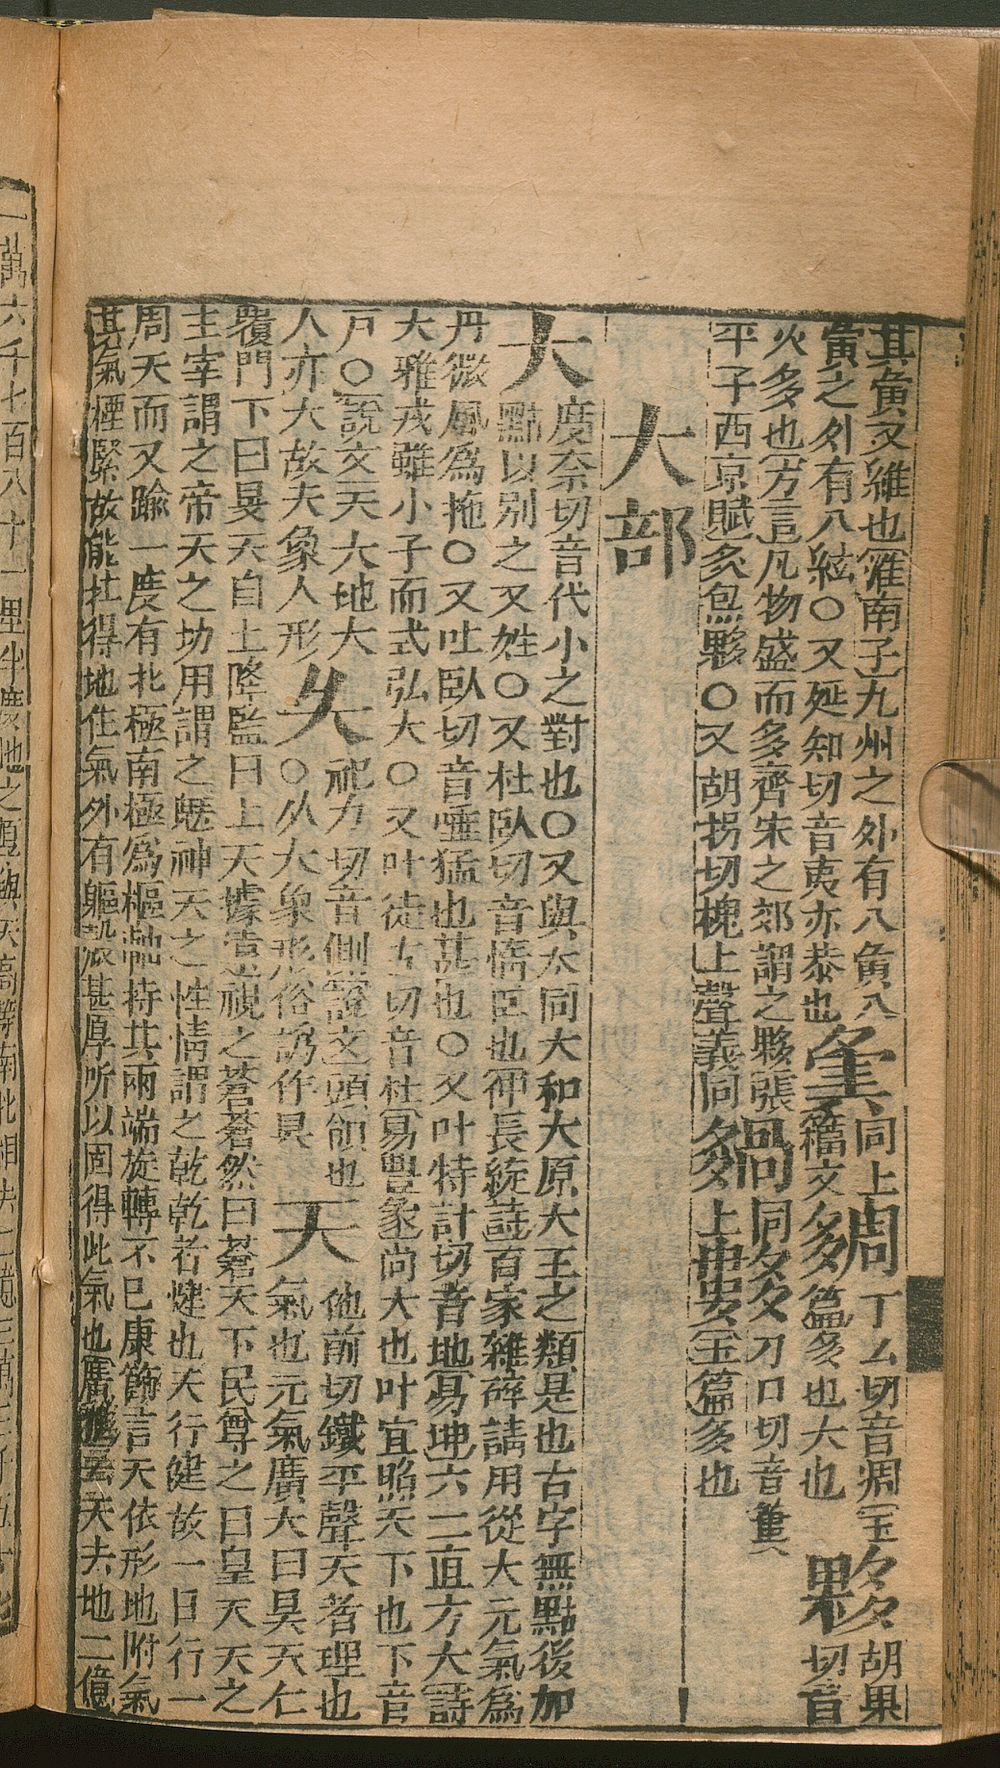 其夤又維也淮南子九州之外有八夤八
夤之外有八紘○又延知切音夷亦恭也 同上 丁幺切音凋玉 夥胡果
籀文 篇多也大也 切音
火多也方言凡物盛而多齊宋之郊謂之夥張 同 刀口切音
平子西京賦炙包夥○又胡拐切槐上聲義同 上 玉篇多也
大部
大度奈切音代小之對也○又與太同大和大原大王之類是也古字無點後加
點以別之又姓○又杜臥切音惰巨也仲長統詩百家雜碎請用從大元氣為
丹微風為拖○又吐臥切音唾猛也甚也○又叶特計切音地易坤六二直方大詩
大雅戎雖小子而式弘大○又叶徒古切音杜易豐彖尚大也叶宜照天下也下音
戸○說文天大地大 祀力切音側說文頭傾也 他前切鐵平聲天者理也
人亦大故大象人形 夨○从大象形俗譌作 天氣也元氣廣大曰昊天仁
覆閔下曰旻天自上降監曰上天據遠視之蒼蒼然曰蒼天下民尊之曰皇天天之
主宰謂之帝天之功用謂之神天之性情謂之乾乾者健也天行健故一日行一
周天而又踰一度有北極南極為樞軸持其兩端旋轉不已康節言天依形地附氣
其氣極緊故能扛得地住氣外有軀殼甚厚所以固得此氣也廣雅云天去地二億
一萬六千七百八十一里半度地之厚與天高等南北相去二億三萬三千五百